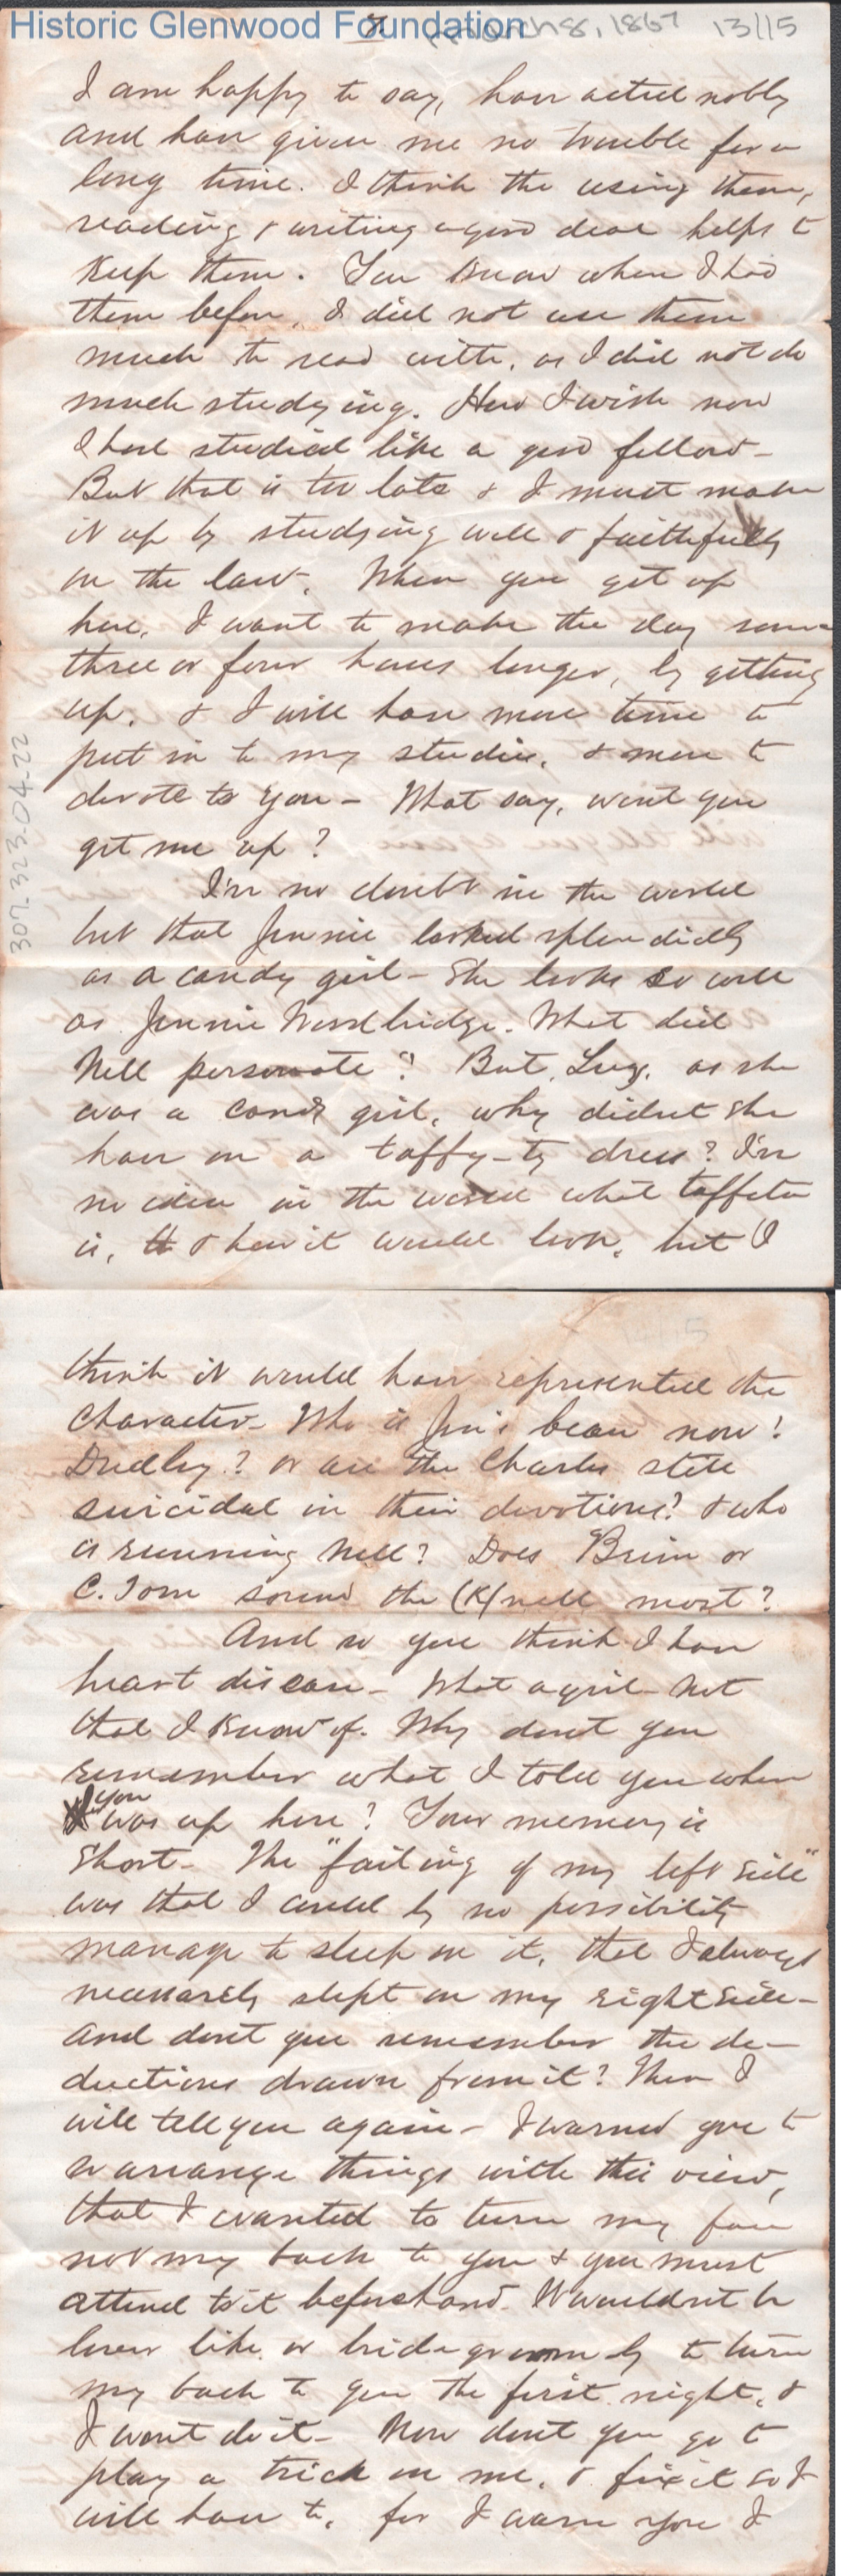 Historic Glenwood Foundation
7 March 8, 1867 13/15
I am happy to say, have acted nobly
and have given me no trouble for a
long time. I think the using them,
reading & writing a good deal helps to
keep them. You know when I had
them before, I did not use them
much to read with, as I did not do
much studying. How I wish now
I had studied like a good fellow -
But that is too late & I must make
it up by studying well & faithfully
on the law. When you get up
here, I want to make the day some
three or four hours longer, by getting
up, & I will have more time to
put in to my studies, & more to
devote to you - What say, wont you
get me up?
I've no doubt in the world
but that Jennie looked splendidly
as a candy girl - She looks so well
as Jennie Woodbridge. What did
Nell personate? But, Lucy, as she
was a candy girl, why didnt she
have on a taffy-ty dress? I've
no idea in the world what taffeta
is, & how it would look, but I
307-323-04-22
think it would have represented the
Character - Who is Jen's beau now?
Dudley? or are the Charles still
suicidal in their devotions? & who
is running Nell? Does Brim or
C. Tom sound the (K)nell most?
And so you think I have
heart disease - What a girl - Not
that I know of. Why dont you
remember what I told you when
you was up here? Your memory is
short - The "failing of my left side"
was that I could by no possibility
manage to sleep on it, that I always
necessarily slept on my right side -
and dont you remember the de-
ductions drawn from it? Then I
will tell you again - I warned you to
so arrange things with this view,
that I wanted to turn my face
not my back to you & you must
attend to it beforehand. It wouldnt be
lover like, or bridegroomly to turn
my back to you the first night, &
I wont do it - Now dont you go to
play a trick on me, & fix it so I
will have to, for I warn you I